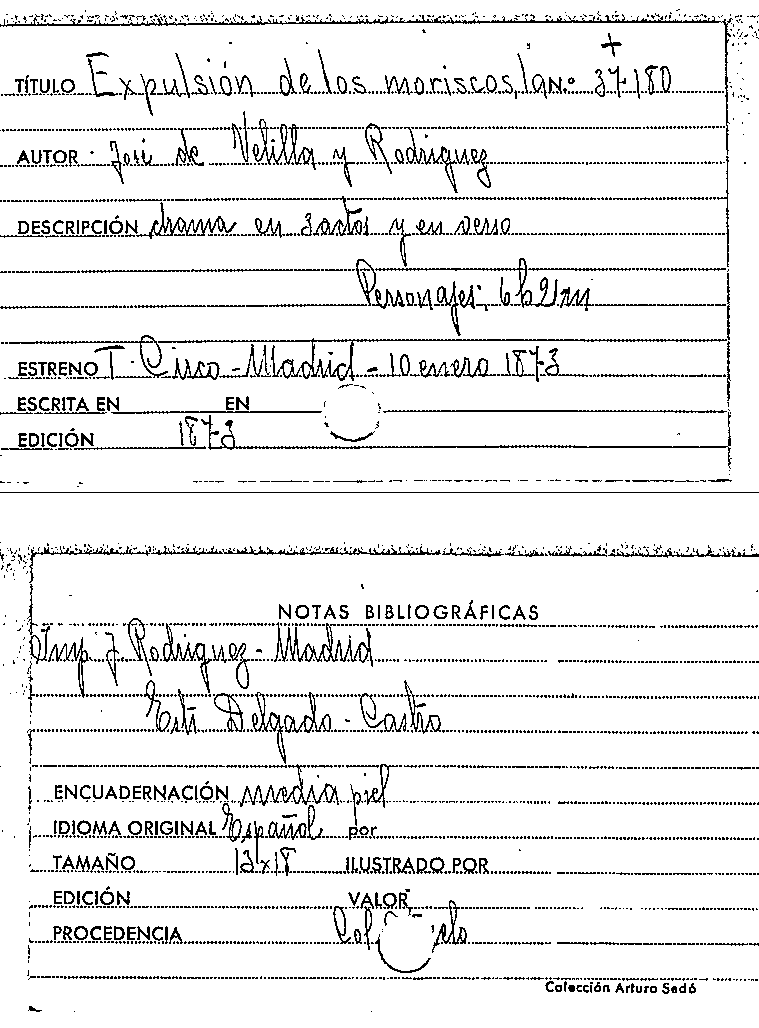 +
TÍTULO Expulsión de los moriscos, la N.º 37-180
AUTOR José de Velilla y Rodriguez
DESCRIPCIÓN drama en 3 actos y en verso
Personajes: 6 h 2 m
ESTRENO T. Circo - Madrid - 10 enero 1873
ESCRITA EN EN
EDICIÓN 1873
NOTAS BIBLIOGRÁFICAS
Imp J. Rodriguez - Madrid
Delgado - Castro
ENCUADERNACIÓN media piel
IDIOMA ORIGINAL Español por
TAMAÑO 13x18 ILUSTRADO POR
EDICIÓN VALOR
PROCEDENCIA
Colección Arturo Sedó